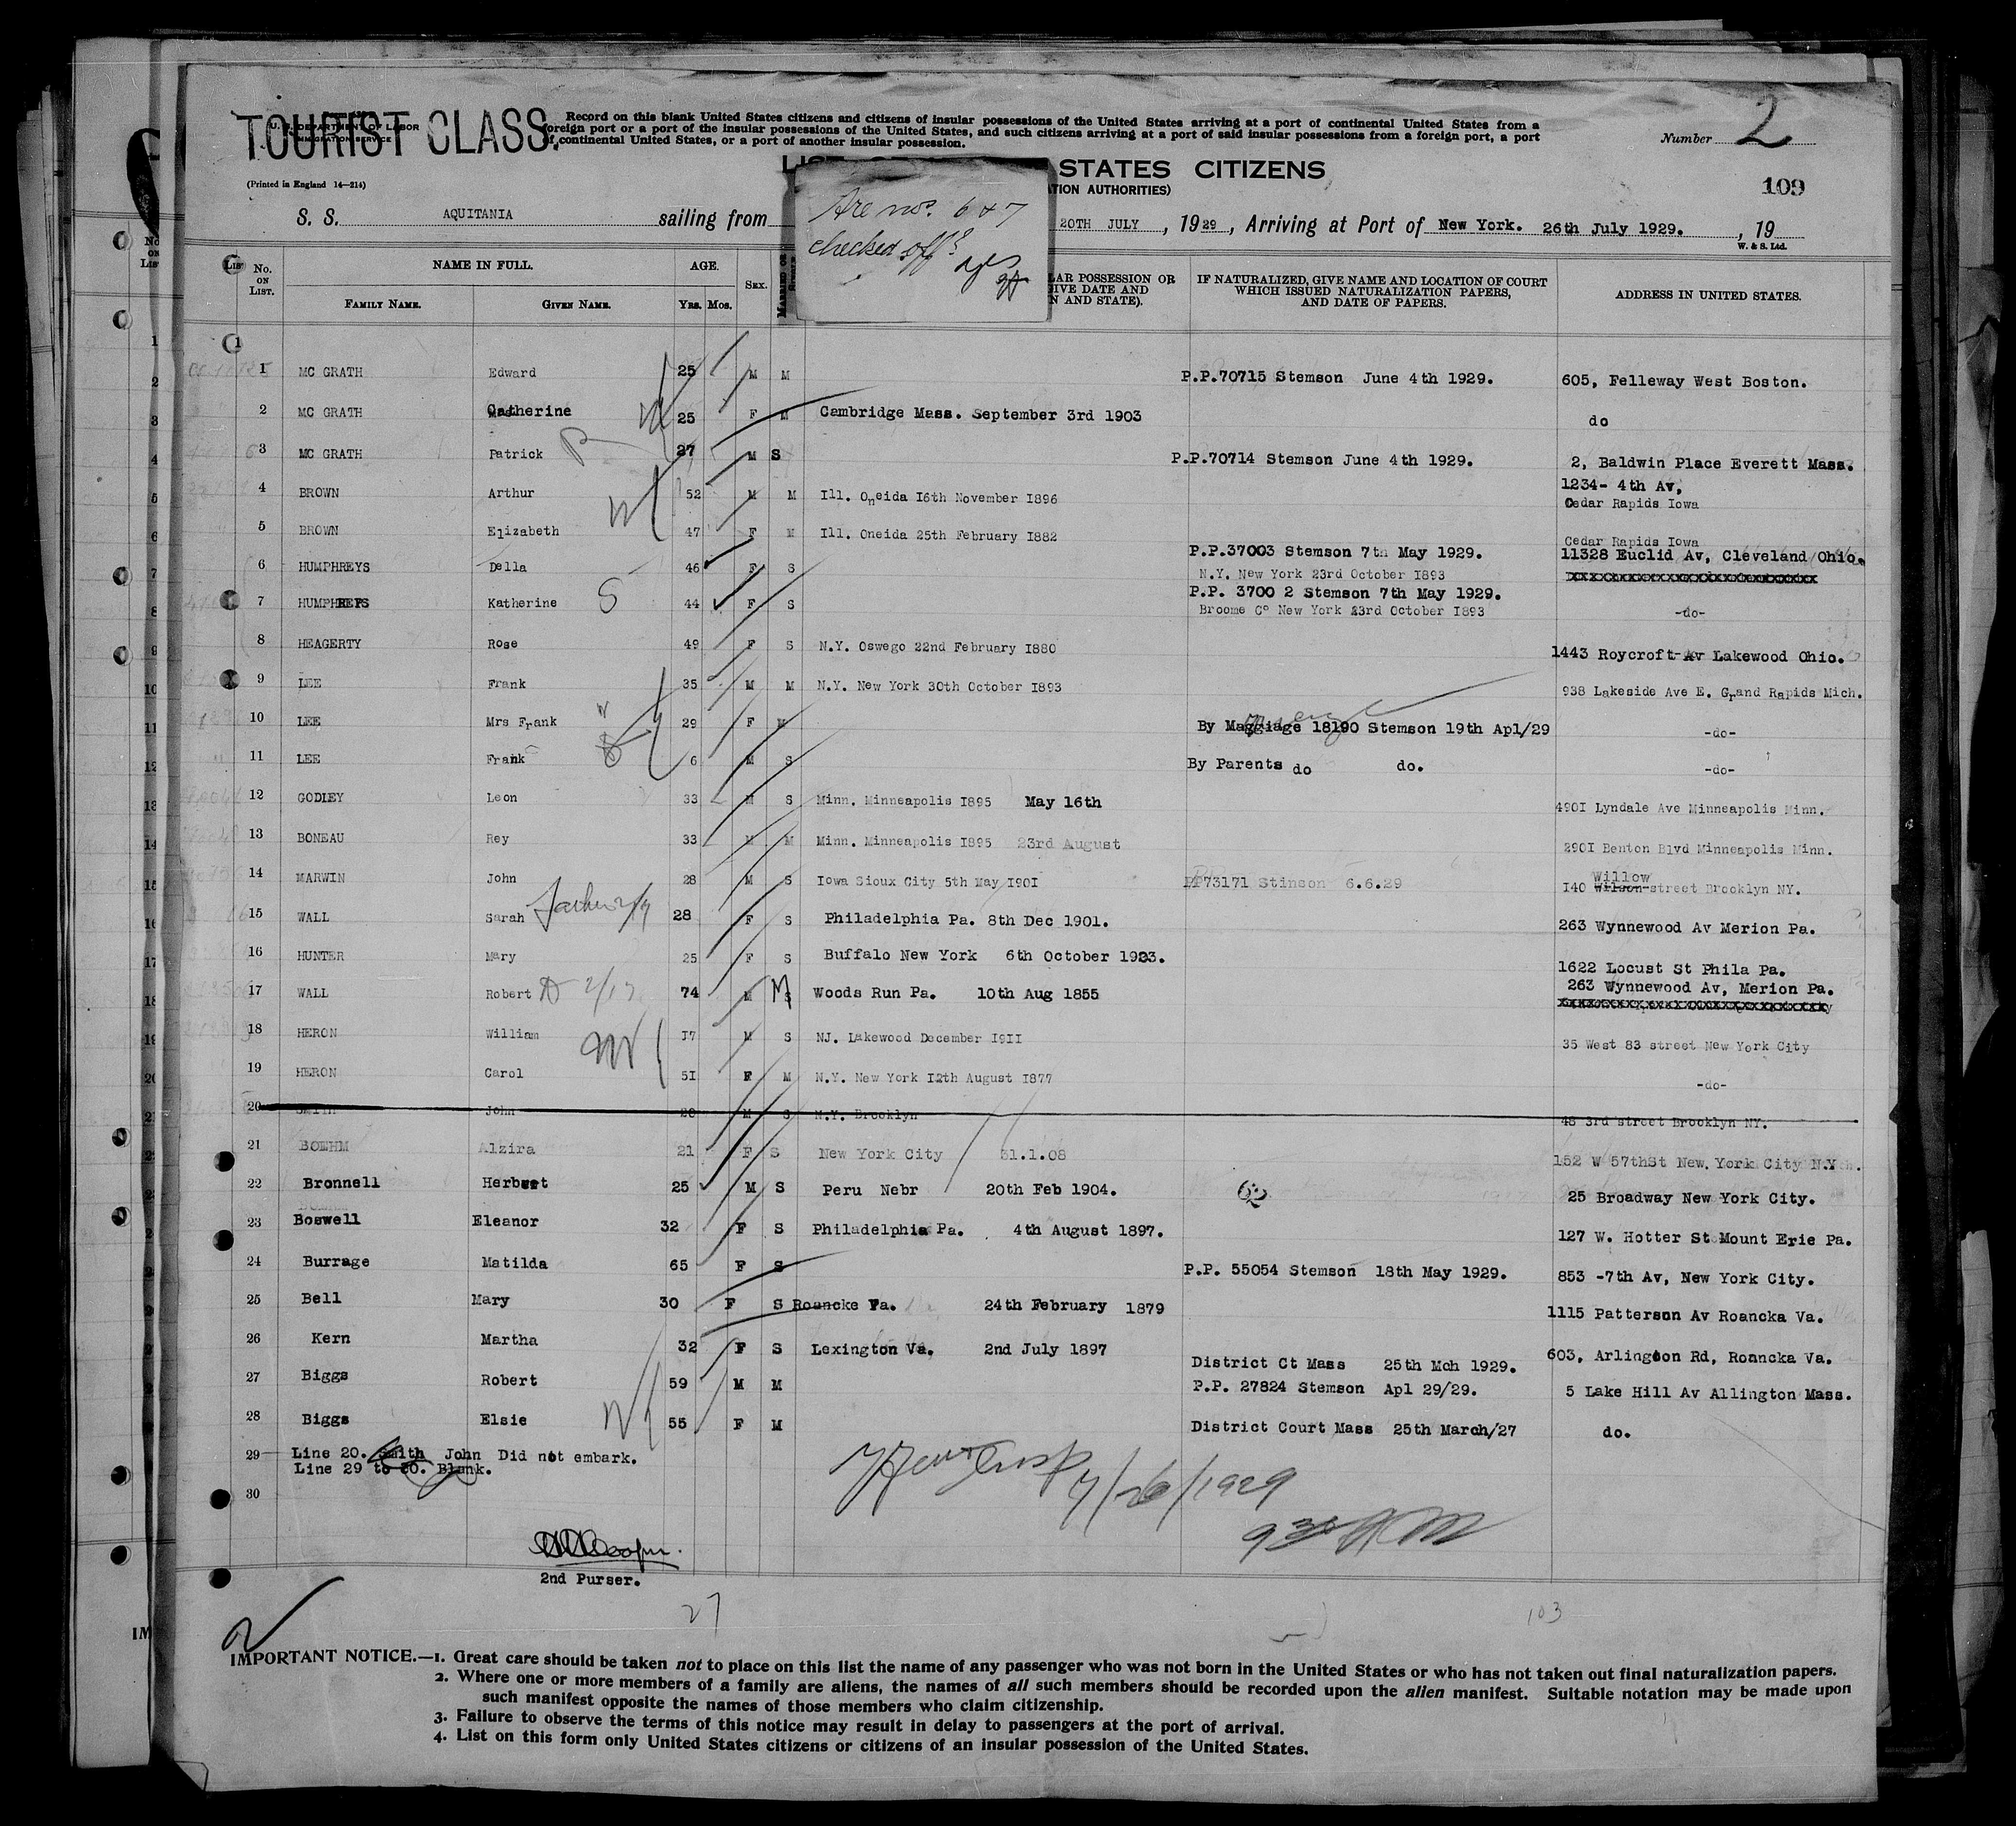 TOURIST CLASS.
U. S. DEPARTMENT OF LABOR
IMMIGRATION SERVICE
Record on this blank United States citizens and citizens of insular possessions of the United States arriving at a port of continental United States from a
foreign port or a port of the insular possessions of the United States, and such citizens arriving at a port of said insular possessions from a foreign port, a port
of continental United States, or a port of another insular possession.
Number 2
STATES CITIZENS
(Printed in England 14—214)
TION AUTHORITIES)
109
S. S. AQUITANIA sailing from 20TH JULY, 1929, Arriving at Port of New York. 26th July 1929. , 19
W. & S. Ltd.
Are nos. 6 & 7
checked off?
yes
LIST No. ON LIST. NAME IN FULL. AGE. SEX. LAR POSSESSION OR IVE DATE AND N AND STATE). IF NATURALIZED, GIVE NAME AND LOCATION OF COURT WHICH ISSUED NATURALIZATION PAPERS, AND DATE OF PAPERS. ADDRESS IN UNITED STATES.
FAMILY NAME. GIVEN NAME. Yrs. Mos.
1
1 MC GRATH Edward 25 M M P.P.70715 Stemson June 4th 1929. 605, Felleway West Boston.
2 MC GRATH Catherine 25 F M Cambridge Mass. September 3rd 1903 do
3 MC GRATH Patrick 27 M S P.P.70714 Stemson June 4th 1929. 2, Baldwin Place Everett Mass.
4 BROWN Arthur 52 M M Ill. Oneida 16th November 1896 1234- 4th Av, Cedar Rapids Iowa
5 BROWN Elizabeth 47 F M Ill. Oneida 25th February 1882 Cedar Rapids Iowa
6 HUMPHREYS Della 46 F S P.P.37003 Stemson 7th May 1929. N.Y. New York 23rd October 1893 11328 Euclid Av, Cleveland Ohio.
7 HUMPHREYS Katherine 44 F S P.P. 3700 2 Stemson 7th May 1929. Broome Co New York 23rd October 1893 -do-
8 HEAGERTY Rose 49 F S N.Y. Oswego 22nd February 1880 1443 Roycroft-Av Lakewood Ohio.
9 LEE Frank 35 M M N.Y. New York 30th October 1893 938 Lakeside Ave E. Grand Rapids Mich.
10 LEE Mrs Frank 29 F M By Maggiage 18190 Stemson 19th Apl/29 -do-
11 LEE Frank 6 M S By Parents do do. -do-
12 GODLEY Leon 33 M S Minn. Minneapolis 1895 May 16th 4901 Lyndale Ave Minneapolis Minn.
13 BONEAU Rey 33 M M Minn. Minneapolis 1895 23rd August 2901 Benton Blvd Minneapolis Minn.
14 MARWIN John 28 M S Iowa Sioux City 5th May 1901 PP73171 Stinson 6.6.29 140 Wilson Willow street Brooklyn NY.
15 WALL Sarah 28 F S Philadelphia Pa. 8th Dec 1901. 263 Wynnewood Av Merion Pa.
16 HUNTER Mary 25 F S Buffalo New York 6th October 1903. 1622 Locust St Phila Pa.
17 WALL Robert 74 M M Woods Run Pa. 10th Aug 1855 263 Wynnewood Av, Merion Pa.
18 HERON William 17 M S NJ. Lakewood December 1911 35 West 83 street New York City
19 HERON Carol 51 F M N.Y. New York 12th August 1877 -do-
20 SMITH John 20 M S N.Y. Brooklyn 48 3rd street Brooklyn NY.
21 BOEHM Alzira 21 F S New York City 31.1.08 152 W 57thSt New York City N.Y.
22 Bronnell Herbert 25 M S Peru Nebr 20th Feb 1904. 25 Broadway New York City.
23 Boswell Eleanor 32 F S Philadelphia Pa. 4th August 1897. 127 W. Hotter St Mount Erie Pa.
24 Burrage Matilda 65 F S P.P. 55054 Stemson 18th May 1929. 853 -7th Av, New York City.
25 Bell Mary 30 F S Roancke Va. 24th February 1879 1115 Patterson Av Roancka Va.
26 Kern Martha 32 F S Lexington Va. 2nd July 1897 603, Arlington Rd, Roancka Va.
27 Biggs Robert 59 M M District Ct Mass 25th Mch 1929. P.P. 27824 Stemson Apl 29/29. 5 Lake Hill Av Allington Mass.
28 Biggs Elsie 55 F M District Court Mass 25th March/27 do.
29 Line 20. Smith John Did not embark.
Line 29 to 30. Blank.
30
7/26/1929
9 30 AM
2nd Purser.
27
103
IMPORTANT NOTICE.—1. Great care should be taken not to place on this list the name of any passenger who was not born in the United States or who has not taken out final naturalization papers.
2. Where one or more members of a family are aliens, the names of all such members should be recorded upon the alien manifest. Suitable notation may be made upon
such manifest opposite the names of those members who claim citizenship.
3. Failure to observe the terms of this notice may result in delay to passengers at the port of arrival.
4. List on this form only United States citizens or citizens of an insular possession of the United States.